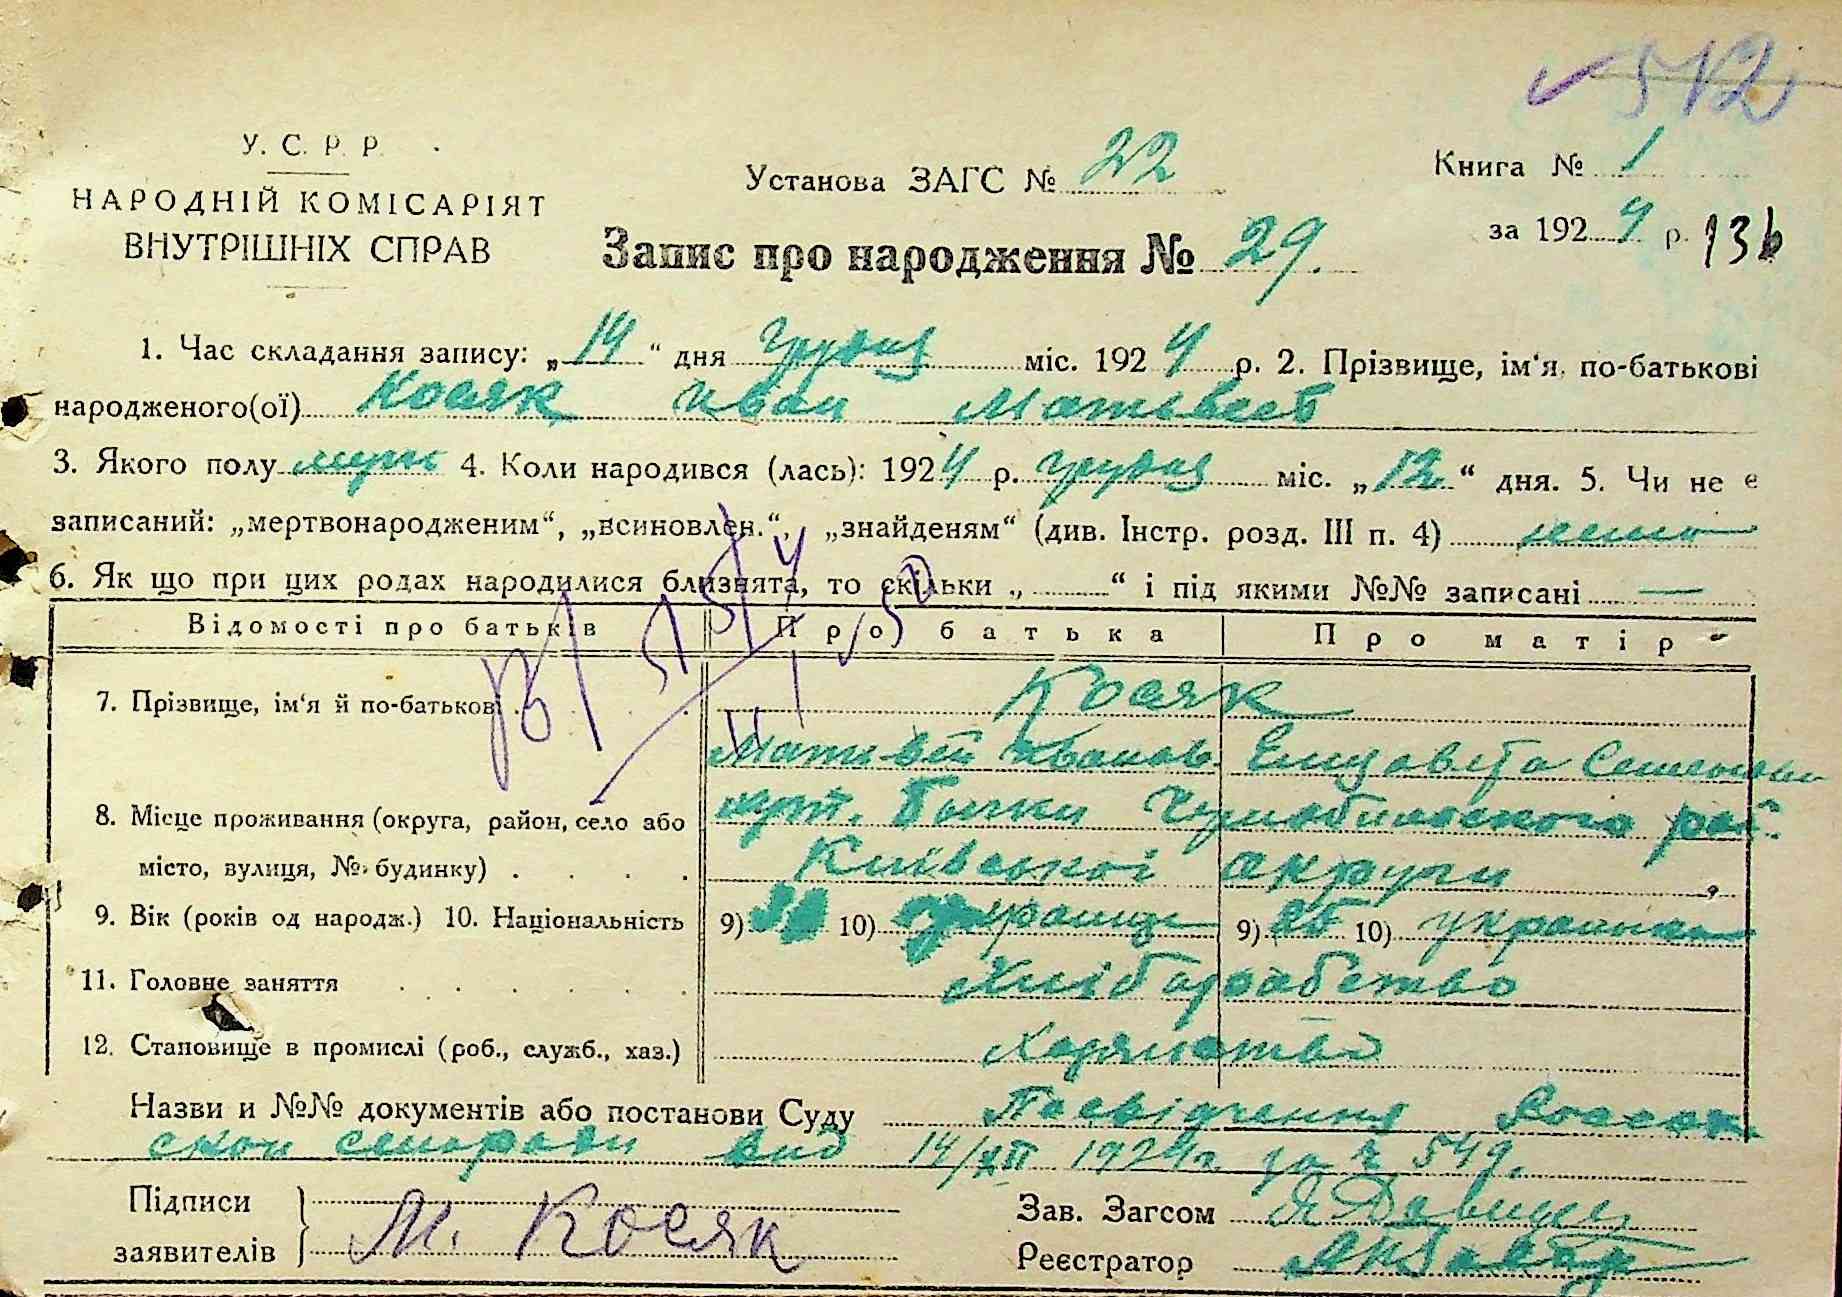 512
У. С. Р. Р.
НАРОДНІЙ КОМІСАРІЯТ
ВНУТРІШНІХ СПРАВ
Установа ЗАГС № 22
Книга № 1
за 1924 р. 136
Запис про народження № 29.
1. Час складання запису: „14“ дня грудня міс. 1924 р. 2. Прізвище, ім‘я, по-батькові
народженого(ої) Косяк Иван Матвеев
3. Якого полу муж 4. Коли народився (лась): 1924 р. грудня міс. „12“ дня. 5. Чи не є
записаний: „мертвонародженим“, „всиновлен.“, „знайденям“ (див. Інстр. розд. III п. 4)
6. Як що при цих родах народилися близнята, то скільки „ “ і під якими №№ записані —
Відомості про батьків Про батька Про матір
7. Прізвище, ім‘я й по-батькові Косяк
Матвій Иванов Елизавета
8. Місце проживання (округа, район, село або хут. Бички Чернобильского рай.
місто, вулиця, № будинку) Київської округи
9. Вік (років од народж.) 10. Національність 9) 10) украинц 9) 25 10) украинка
11. Головне заняття Хліборобство
12. Становище в промислі (роб., служб., хаз.)
Назви и №№ документів або постанови Суду Посвідчення
ской сельради вид 14/XII 1924 г. за № 549.
Підписи
заявителів М. Косяк
Зав. Загсом
Реєстратор